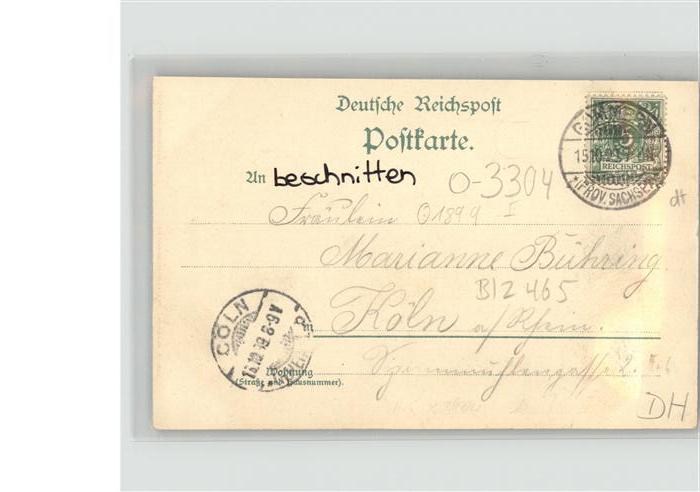 Deutsche Reichspost
Postkarte.
An beschnitten
0-3304
dt
Fräulein 01899 I
Marianne Bühring
BIZ 465
Köln a/Rhein.
in
REICHSPOST
15.10.99
(PROV. SACHSEN)
CÖLN
15.10.99 8-9V
Wohnung
(Straße und Hausnummer).
DH